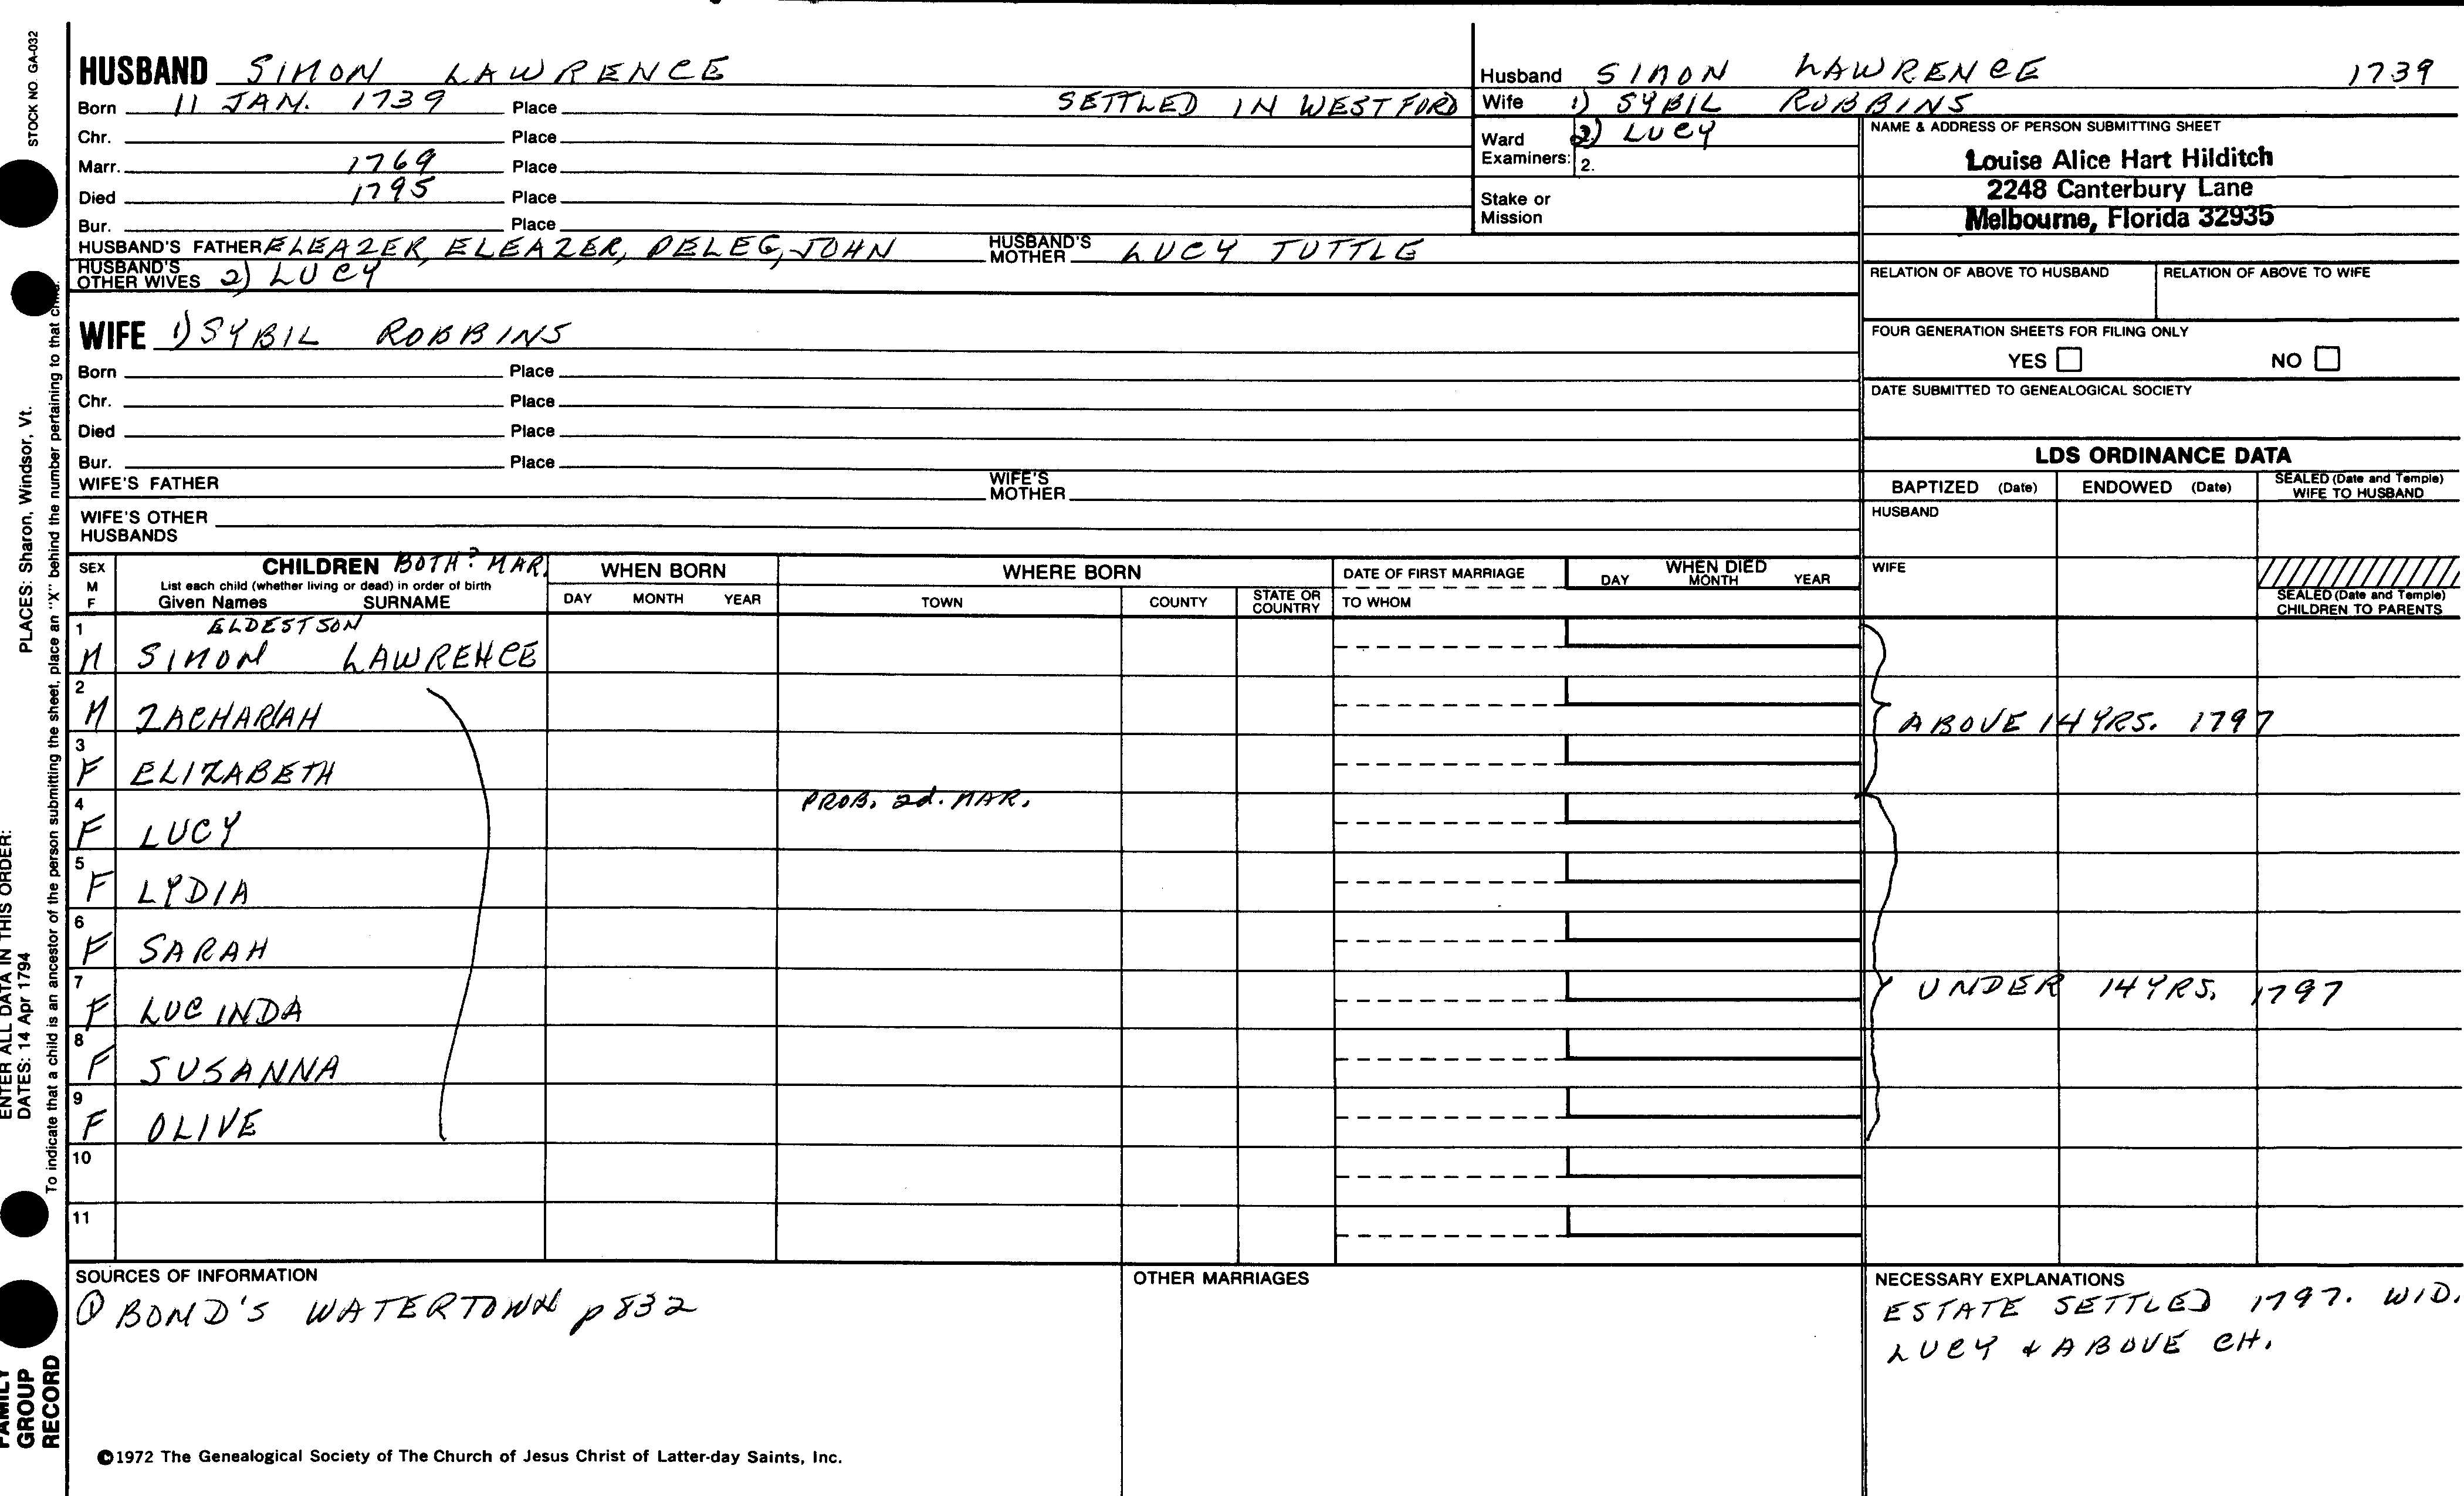 STOCK NO. GA-032
PLACES: Sharon, Windsor, Vt.
ENTER ALL DATA IN THIS ORDER:
DATES: 14 Apr 1794
To indicate that a child is an ancestor of the person submitting the sheet, place an "X" behind the number pertaining to that child.
FAMILY
GROUP
RECORD
HUSBAND SIMON LAWRENCE
Born 11 JAN. 1739 Place SETTLED IN WESTFORD
Chr. Place
Marr. 1769 Place
Died 1795 Place
Bur. Place
HUSBAND'S FATHER ELEAZER, ELEAZER, PELEG, JOHN HUSBAND'S MOTHER LUCY TUTTLE
HUSBAND'S OTHER WIVES 2) LUCY
WIFE 1) SYBIL ROBBINS
Born Place
Chr. Place
Died Place
Bur. Place
WIFE'S FATHER WIFE'S MOTHER
WIFE'S OTHER HUSBANDS
Husband SIMON LAWRENCE 1739
Wife 1) SYBIL ROBBINS
Ward Examiners: 2) LUCY
2.
Stake or Mission
NAME & ADDRESS OF PERSON SUBMITTING SHEET
Louise Alice Hart Hilditch
2248 Canterbury Lane
Melbourne, Florida 32935
RELATION OF ABOVE TO HUSBAND RELATION OF ABOVE TO WIFE
FOUR GENERATION SHEETS FOR FILING ONLY
YES NO
DATE SUBMITTED TO GENEALOGICAL SOCIETY
LDS ORDINANCE DATA
BAPTIZED (Date) ENDOWED (Date) SEALED (Date and Temple) WIFE TO HUSBAND
HUSBAND
WIFE
SEALED (Date and Temple) CHILDREN TO PARENTS
SEX M F
CHILDREN BOTH? MAR.
List each child (whether living or dead) in order of birth
Given Names SURNAME
WHEN BORN
DAY MONTH YEAR
WHERE BORN
TOWN COUNTY STATE OR COUNTRY
DATE OF FIRST MARRIAGE
TO WHOM
WHEN DIED
DAY MONTH YEAR
1 ELDEST SON
M SIMON LAWRENCE
2
M ZACHARIAH ABOVE 14 YRS. 1797
3
F ELIZABETH
4 PROB. 2d. MAR.
F LUCY
5
F LYDIA
6
F SARAH
7
F LUCINDA UNDER 14 YRS. 1797
8
F SUSANNA
9
F OLIVE
10
11
SOURCES OF INFORMATION
① BOND'S WATERTOWN p 832
OTHER MARRIAGES
NECESSARY EXPLANATIONS
ESTATE SETTLED 1797. WID.
LUCY & ABOVE CH.
©1972 The Genealogical Society of The Church of Jesus Christ of Latter-day Saints, Inc.